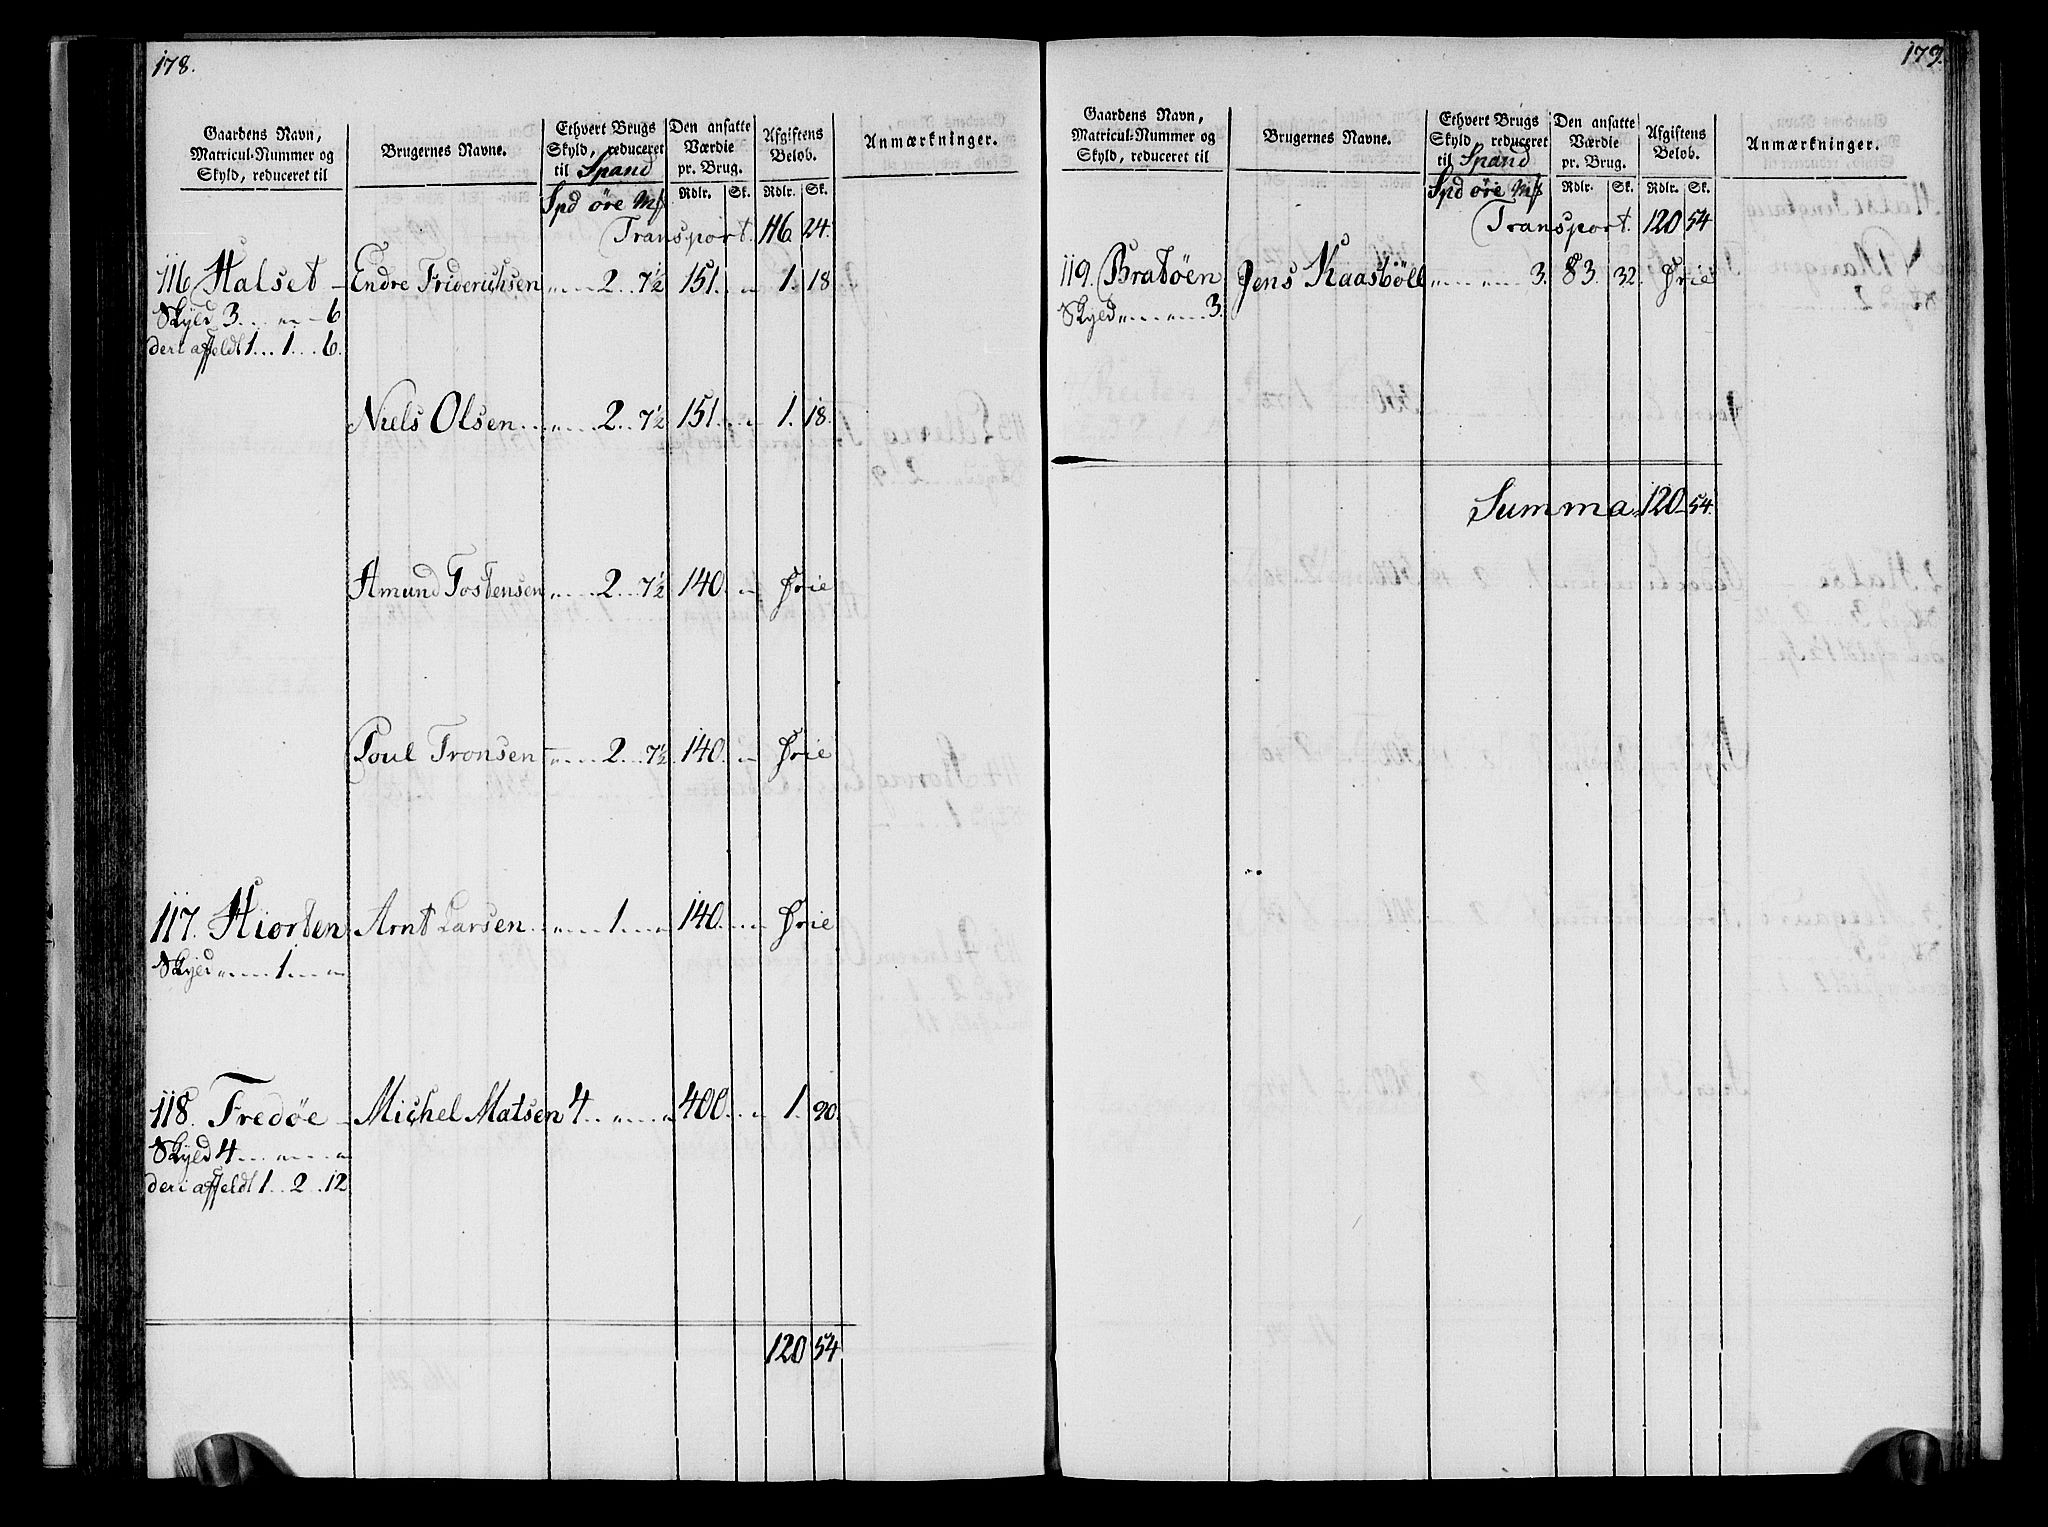 178.
Gaardens Navn, Matricul-Nummer og Skyld, reduceret til | Brugernes Navne. | Ethvert Brugs Skyld, reduceret til Spand | Den ansatte Værdie pr. Brug. | Afgiftens Beløb. | Anmærkninger.
Spd öre Mf | Rdlr. | Sk. | Rdlr. | Sk.
Transport. 116. 24.
116 Halset - Endre Friderichsen „ .. 2 .. 7½ 151. .. „ 1. 18
Skyld 3 .. „ .. 6
deri affeldt 1 .. 1 .. 6.
Niels Olsen .. „ .. 2 .. 7½ 151. .. „ 1. 18.
Amund Tostensen „ .. 2 .. 7½ 140 .. „ Frie
Poul Tronsen „ .. 2 .. 7½ 140 .. „ Frie
117. Hiorten Arnt Larsen .. „ .. 1 .. „ 140 .. „ Frie
Skyld „ .. 1 .. „
118. Fredøe - Michel Matsen 4 .. „ .. „ 400 .. „ 1. 90.
Skyld 4 .. „ .. „
deri affeldt 1 .. 2 .. 12
120 54
179.
Gaardens Navn, Matricul-Nummer og Skyld, reduceret til | Brugernes Navne. | Ethvert Brugs Skyld, reduceret til Spand | Den ansatte Værdie pr. Brug. | Afgiftens Beløb. | Anmærkninger.
Spd öre Mf | Rdlr. | Sk. | Rdlr. | Sk.
Transport. 120 54
119. Bratöen Jens Kaasböll „ .. „ .. 3. 83. 32. Frie
Skyld „ .. „ .. 3.
Summa 120 54.